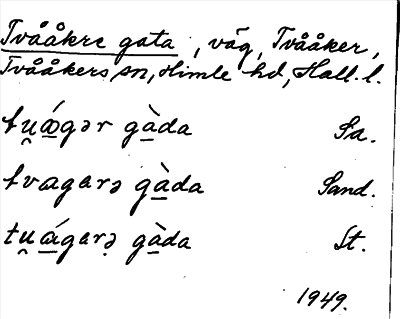 Tvååkre gata, väg, Tvååker,
Tvååkers sn, Himle hd, Hall. l.
tu̯ǿgər gàda Sa.
tvagarə gàda Sand.
tu̯ágarə̣ gàda St.
1949.